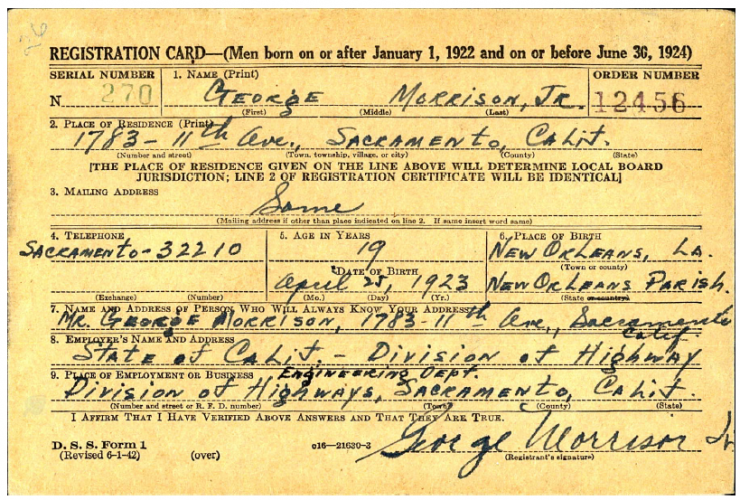 26
REGISTRATION CARD—(Men born on or after January 1, 1922 and on or before June 30, 1924)
SERIAL NUMBER 1. NAME (Print) ORDER NUMBER
N 270 GEORGE MORRISON, JR. 12456
(First) (Middle) (Last)
2. PLACE OF RESIDENCE (Print)
1783-11th Ave., SACRAMENTO, CALIF.
(Number and street) (Town, township, village, or city) (County) (State)
[THE PLACE OF RESIDENCE GIVEN ON THE LINE ABOVE WILL DETERMINE LOCAL BOARD
JURISDICTION; LINE 2 OF REGISTRATION CERTIFICATE WILL BE IDENTICAL]
3. MAILING ADDRESS
Same
(Mailing address if other than place indicated on line 2. If same insert word same)
4. TELEPHONE 5. AGE IN YEARS 6. PLACE OF BIRTH
SACRAMENTO-32210 19 NEW ORLEANS, LA.
DATE OF BIRTH (Town or county)
April 25, 1923 NEW ORLEANS PARISH.
(Exchange) (Number) (Mo.) (Day) (Yr.) (State or country)
7. NAME AND ADDRESS OF PERSON WHO WILL ALWAYS KNOW YOUR ADDRESS
MR. GEORGE MORRISON, 1783-11th Ave., Sacramento
Calif.
8. EMPLOYER'S NAME AND ADDRESS
STATE of CALIF. - Division of Highway
9. PLACE OF EMPLOYMENT OR BUSINESS ENGINEERING DEPT.
Division of Highways, SACRAMENTO, CALIF.
(Number and street or R. F. D. number) (Town) (County) (State)
I AFFIRM THAT I HAVE VERIFIED ABOVE ANSWERS AND THAT THEY ARE TRUE.
George Morrison Jr.
D. S. S. Form 1 c16—21630-3
(Revised 6-1-42) (over) (Registrant's signature)